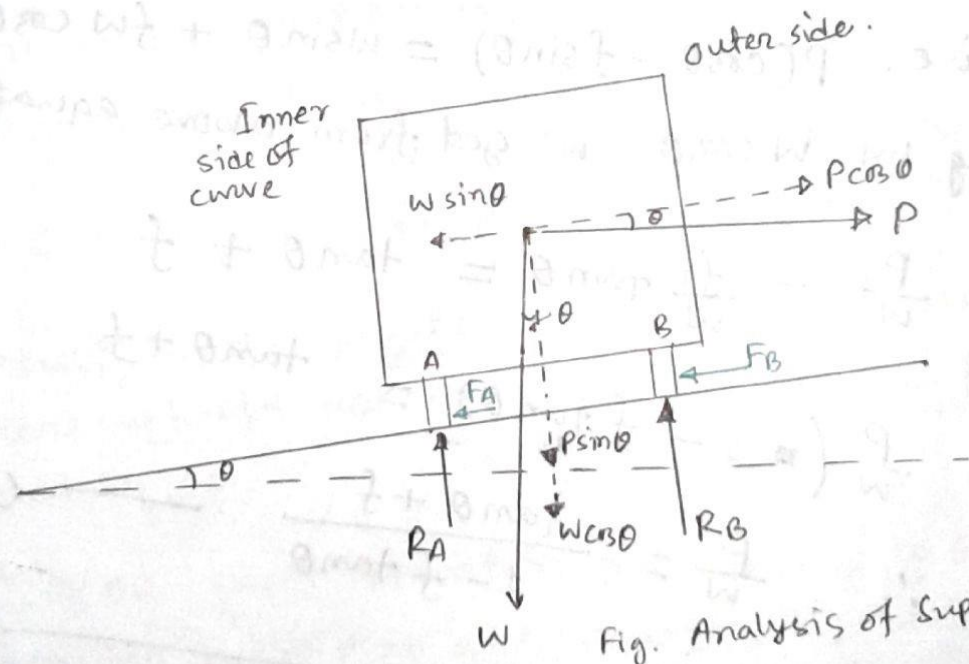 outer side.
Inner
side of
curve
W sinθ
P cosθ
θ
P
θ
A
B
FA
FB
θ
Psinθ
Wcosθ
RA
RB
W
Fig. Analysis of Sup